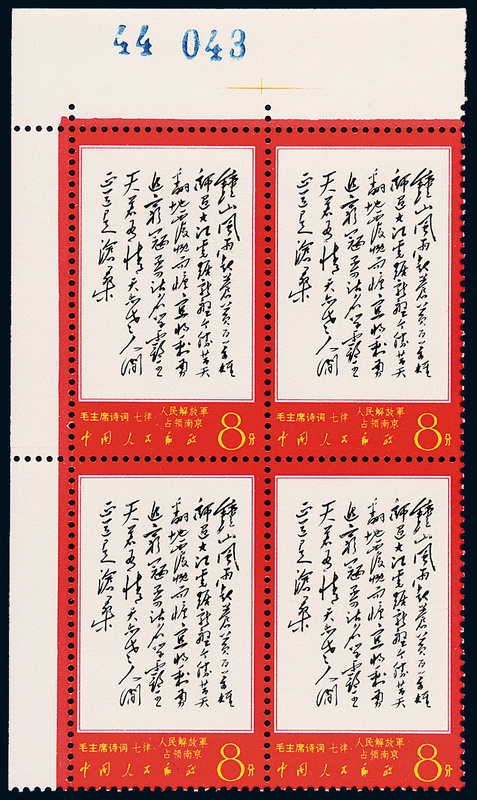 44 043
鐘山風雨起蒼黄百萬雄
師過大江虎踞龍盤今勝昔天
翻地覆慨而慷宜將剩勇
追窮寇不可沽名學霸王
天若有情天亦老人間
正道是滄桑
毛主席诗词 七律 人民解放軍
占领南京
中国人民邮政 8分
鐘山風雨起蒼黄百萬雄
師過大江虎踞龍盤今勝昔天
翻地覆慨而慷宜將剩勇
追窮寇不可沽名學霸王
天若有情天亦老人間
正道是滄桑
毛主席诗词 七律 人民解放軍
占领南京
中国人民邮政 8分
鐘山風雨起蒼黄百萬雄
師過大江虎踞龍盤今勝昔天
翻地覆慨而慷宜將剩勇
追窮寇不可沽名學霸王
天若有情天亦老人間
正道是滄桑
毛主席诗词 七律 人民解放軍
占领南京
中国人民邮政 8分
鐘山風雨起蒼黄百萬雄
師過大江虎踞龍盤今勝昔天
翻地覆慨而慷宜將剩勇
追窮寇不可沽名學霸王
天若有情天亦老人間
正道是滄桑
毛主席诗词 七律 人民解放軍
占领南京
中国人民邮政 8分